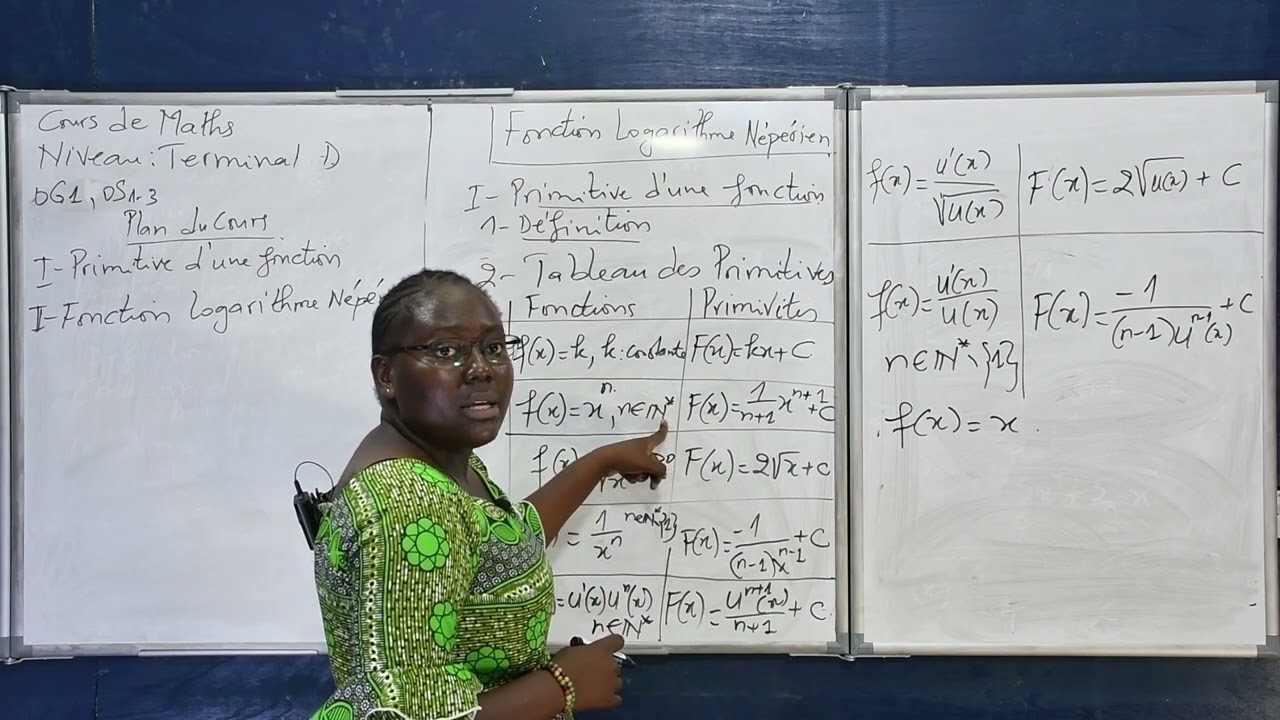 Cours de Maths
Niveau : Terminal D
OG1, OS1.3
Plan du Cours
I- Primitive d'une fonction
I- Fonction Logarithme Népé
Fonction Logarithme Népérien
I- Primitive d'une fonction
1- Définition
2- Tableau des Primitives
Fonctions | Primivites
f(x)=k, k: constante | F(x)=kx+C
f(x)=x^n, n∈ℕ* | F(x)=1/(n+1) x^(n+1)+C
f(x) | F(x)=2√x+C
= 1/x^n n∈ℕ*\{1} | F(x)=-1/((n-1)x^(n-1))+C
=u'(x)u^n(x) n∈ℕ* | F(x)=u^(n+1)(x)/(n+1)+C
f(x)=u'(x)/√u(x) | F(x)=2√u(x)+C
f(x)=u'(x)/u(x) | F(x)=-1/((n-1)u^(n-1)(x))+C
n∈ℕ*\{1}
. f(x)=x .